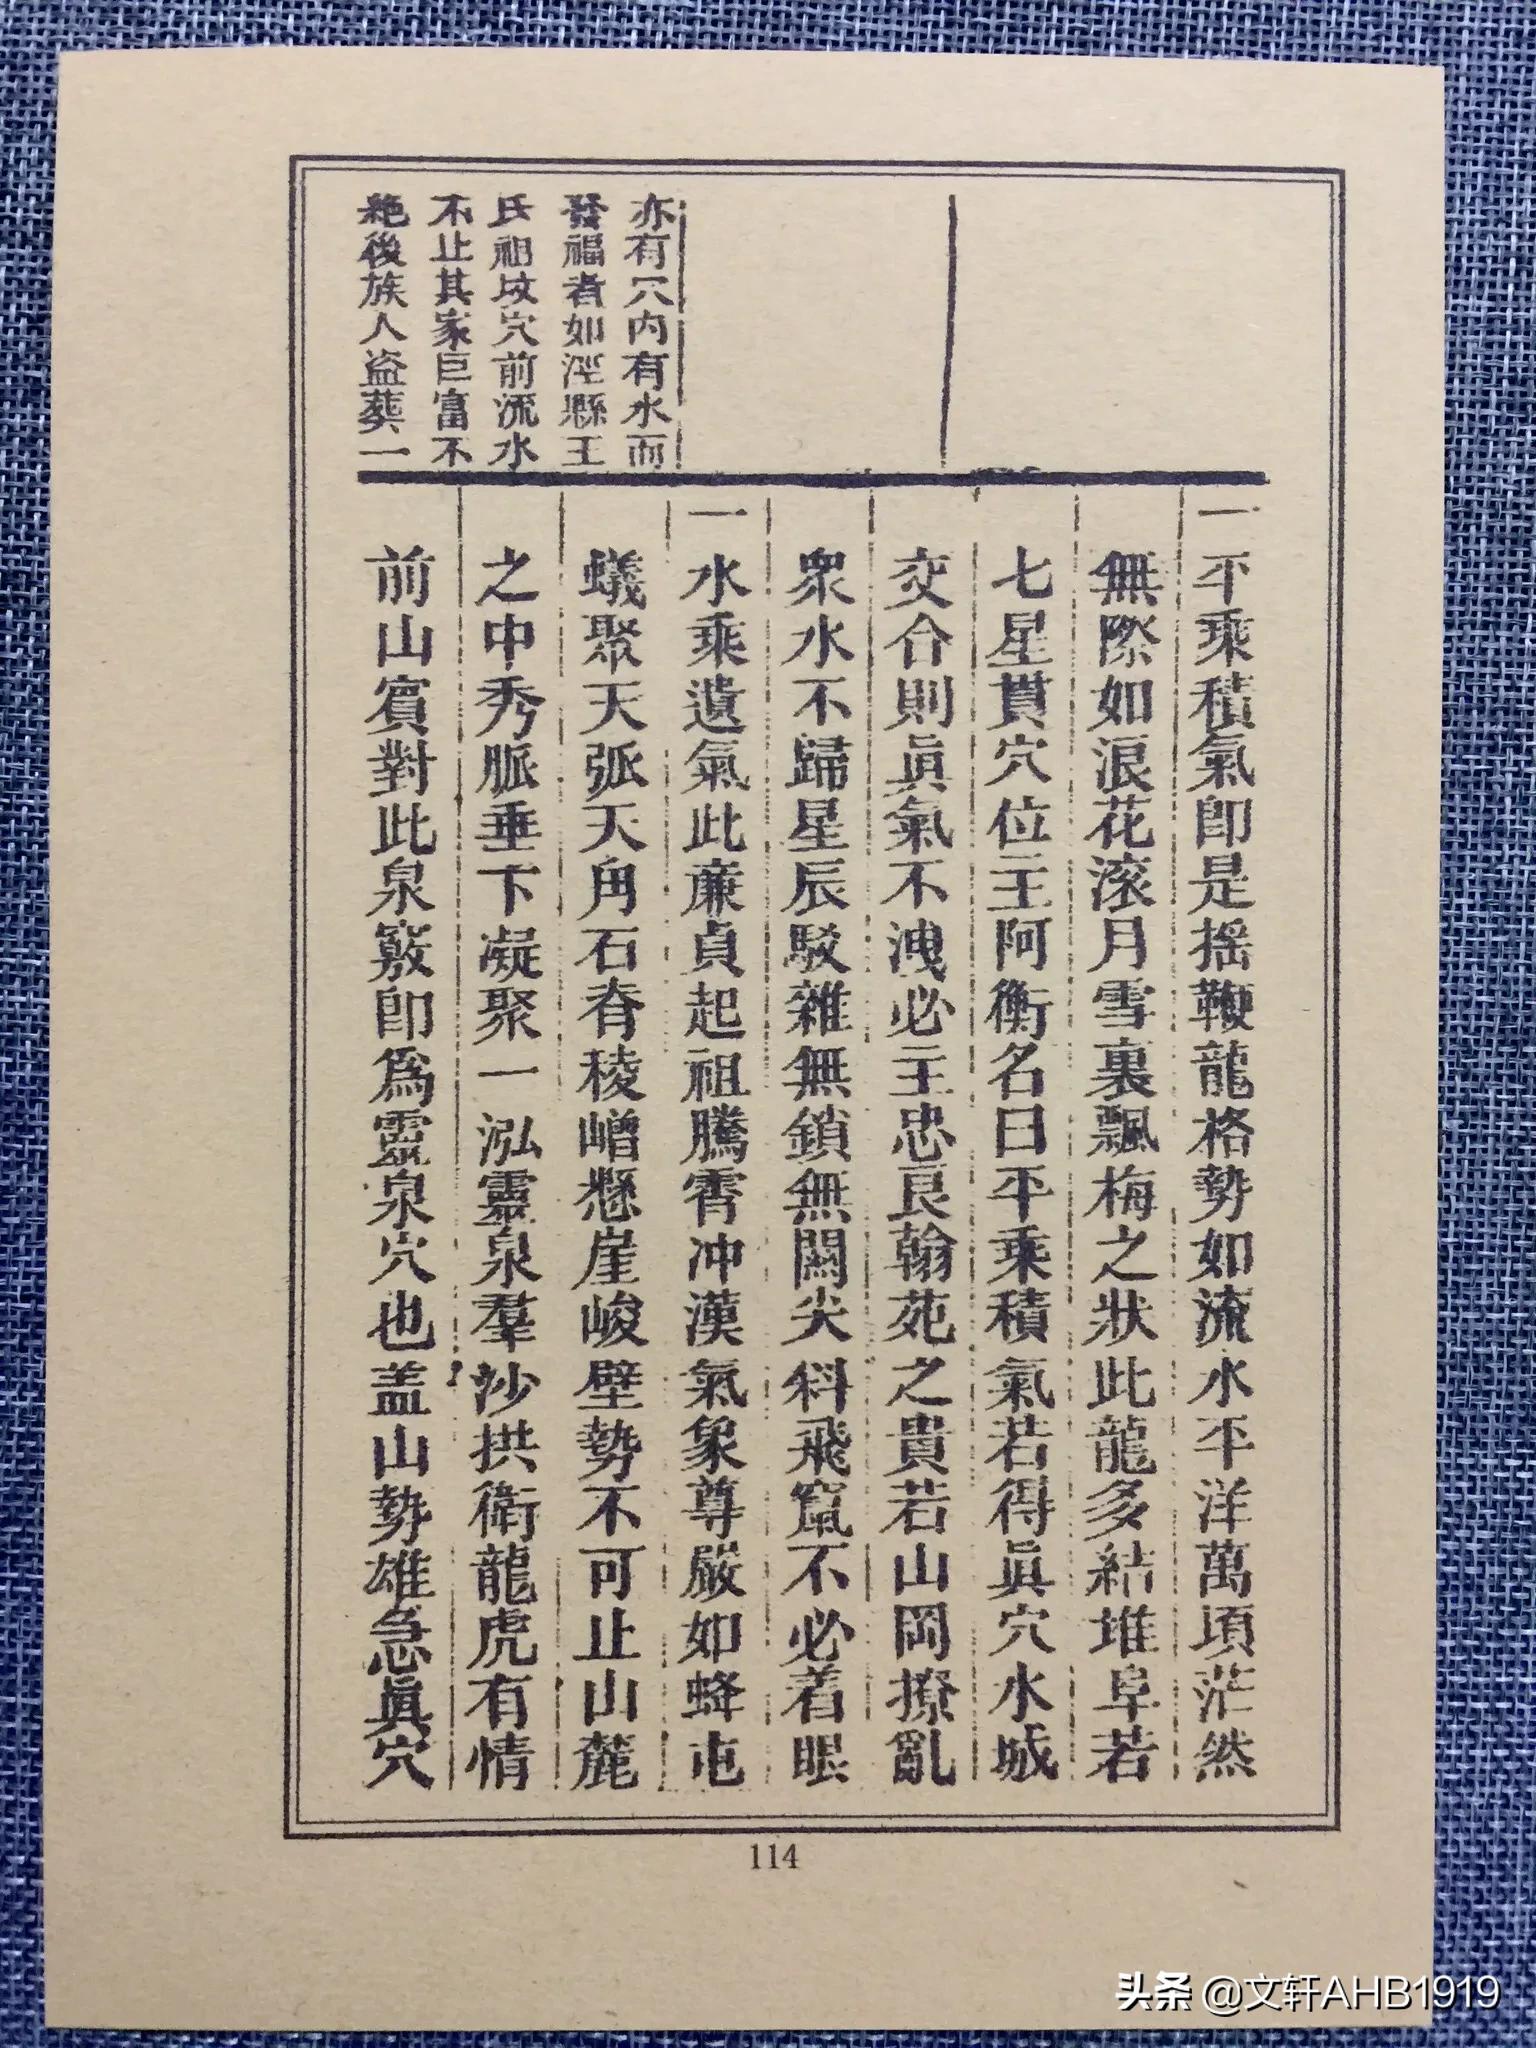 亦有穴內有水而
發福者如涇縣王
氏祖坟穴前流水
不止其家巨富不
絶後族人盗葬一
一平乘積氣卽是摇鞭龍格勢如流水平洋萬頃茫然
無際如浪花滚月雪裏飄梅之狀此龍多結堆阜若
七星貫穴位主阿衡名曰平乘積氣若得眞穴水城
交合則眞氣不洩必主忠良翰苑之貴若山岡撩亂
衆水不歸星辰駁雜無鎖無關尖斜飛竄不必着眼
一水乘遺氣此廉貞起祖騰霄冲漢氣象尊嚴如蜂屯
蟻聚天弧天角石脊稜嶒懸崖峻壁勢不可止山麓
之中秀脈垂下凝聚一泓靈泉羣沙拱衛龍虎有情
前山賓對此泉竅卽爲靈泉穴也盖山勢雄急眞穴
114
头条 @文轩AHB1919